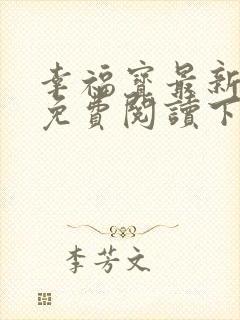 幸福寳最新
免費閱讀下
李芳文